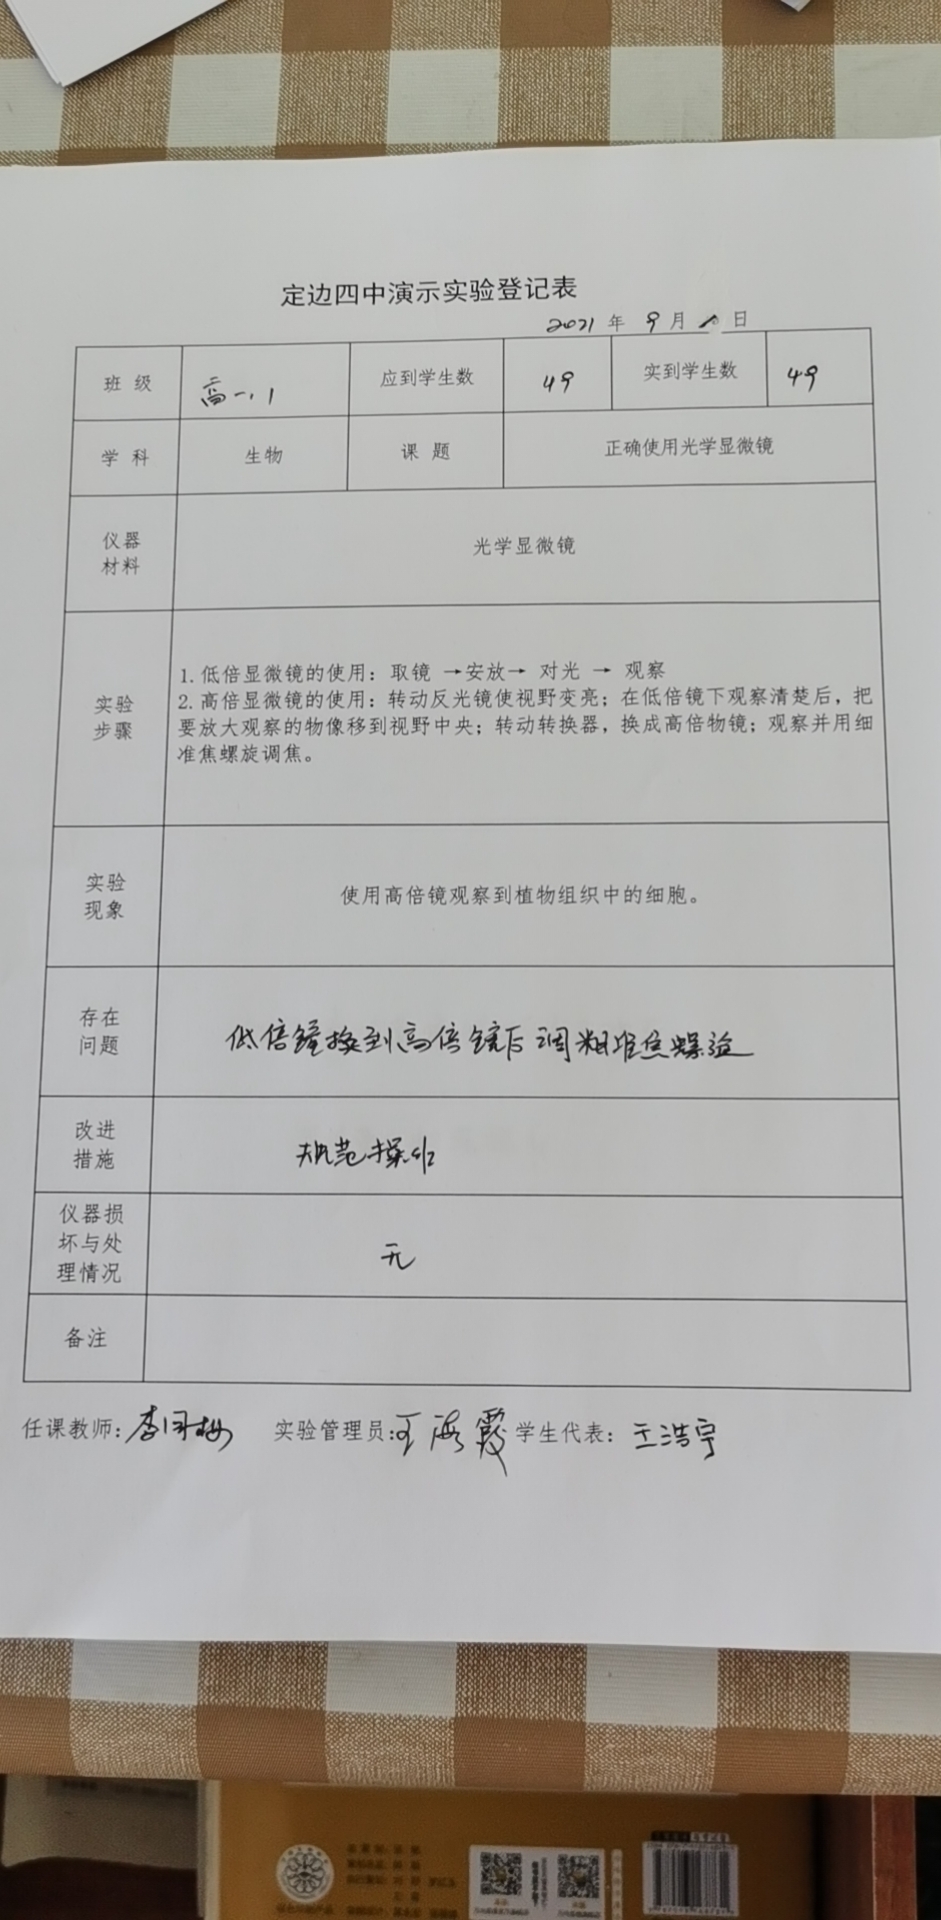 定边四中演示实验登记表
2021 年 9 月 日
班 级 高一.1 应到学生数 49 实到学生数 49
学 科 生物 课 题 正确使用光学显微镜
仪器
材料
光学显微镜
实验
步骤
1. 低倍显微镜的使用：取镜 →安放→ 对光 → 观察
2. 高倍显微镜的使用：转动反光镜使视野变亮；在低倍镜下观察清楚后，把
要放大观察的物像移到视野中央；转动转换器，换成高倍物镜；观察并用细
准焦螺旋调焦。
实验
现象
使用高倍镜观察到植物组织中的细胞。
存在
问题
低倍镜换到高倍镜后调粗准焦螺旋
改进
措施
规范操作
仪器损
坏与处
理情况
无
备注
任课教师： 实验管理员:王海霞 学生代表： 王浩宇